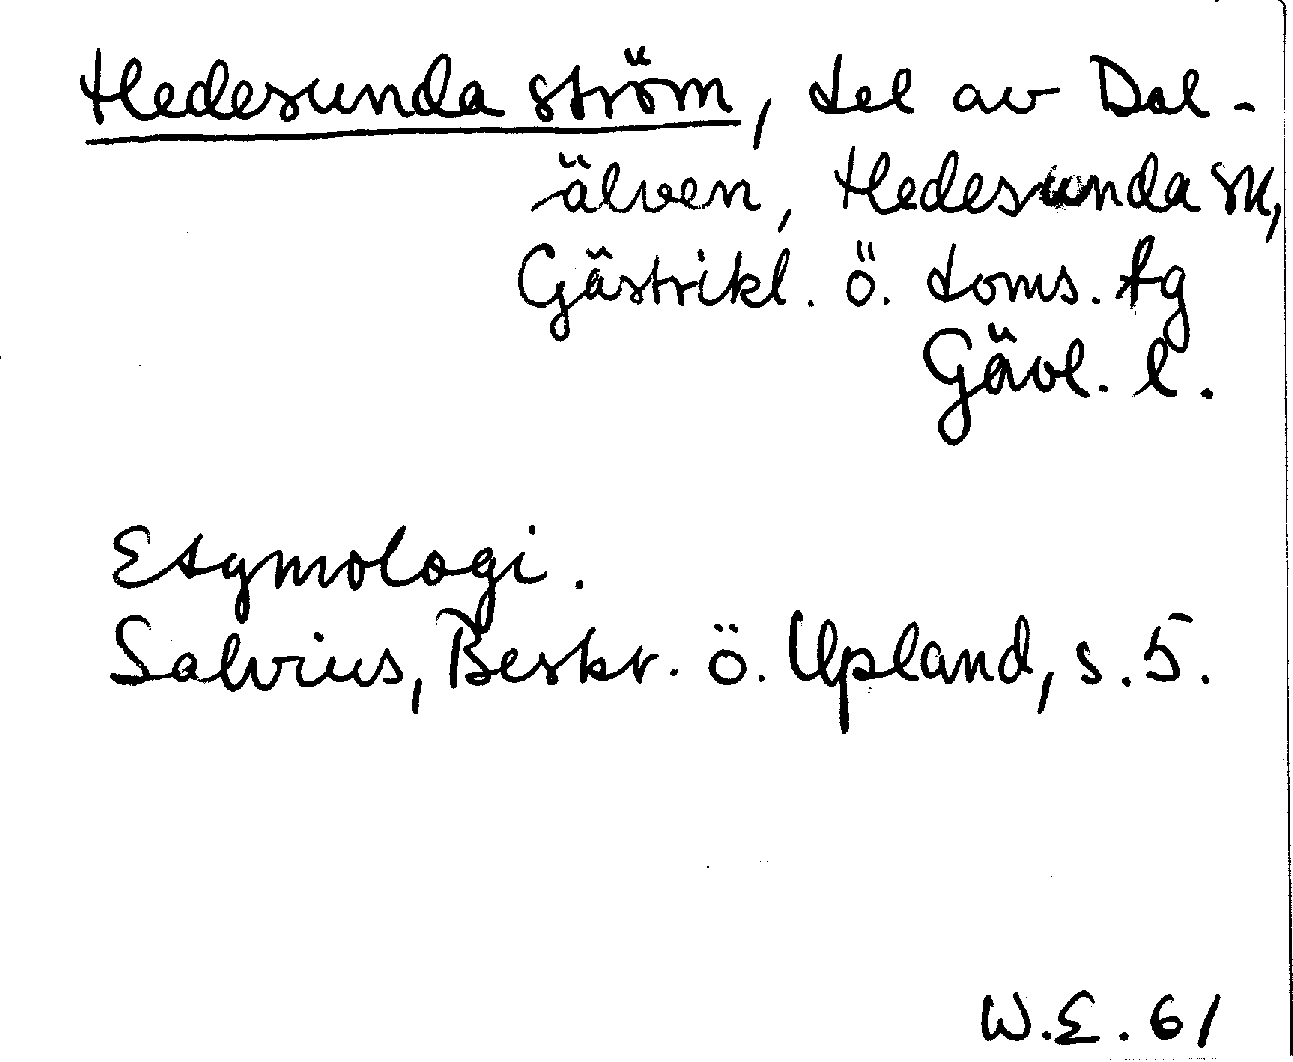 Hedesunda ström, del av Dal-
älven, Hedesunda sn,
Gästrikl. ö. doms. tg
Gävl. l.
Etymologi.
Salvius, Beskr. ö. Upland, s. 5.
W.E. 61